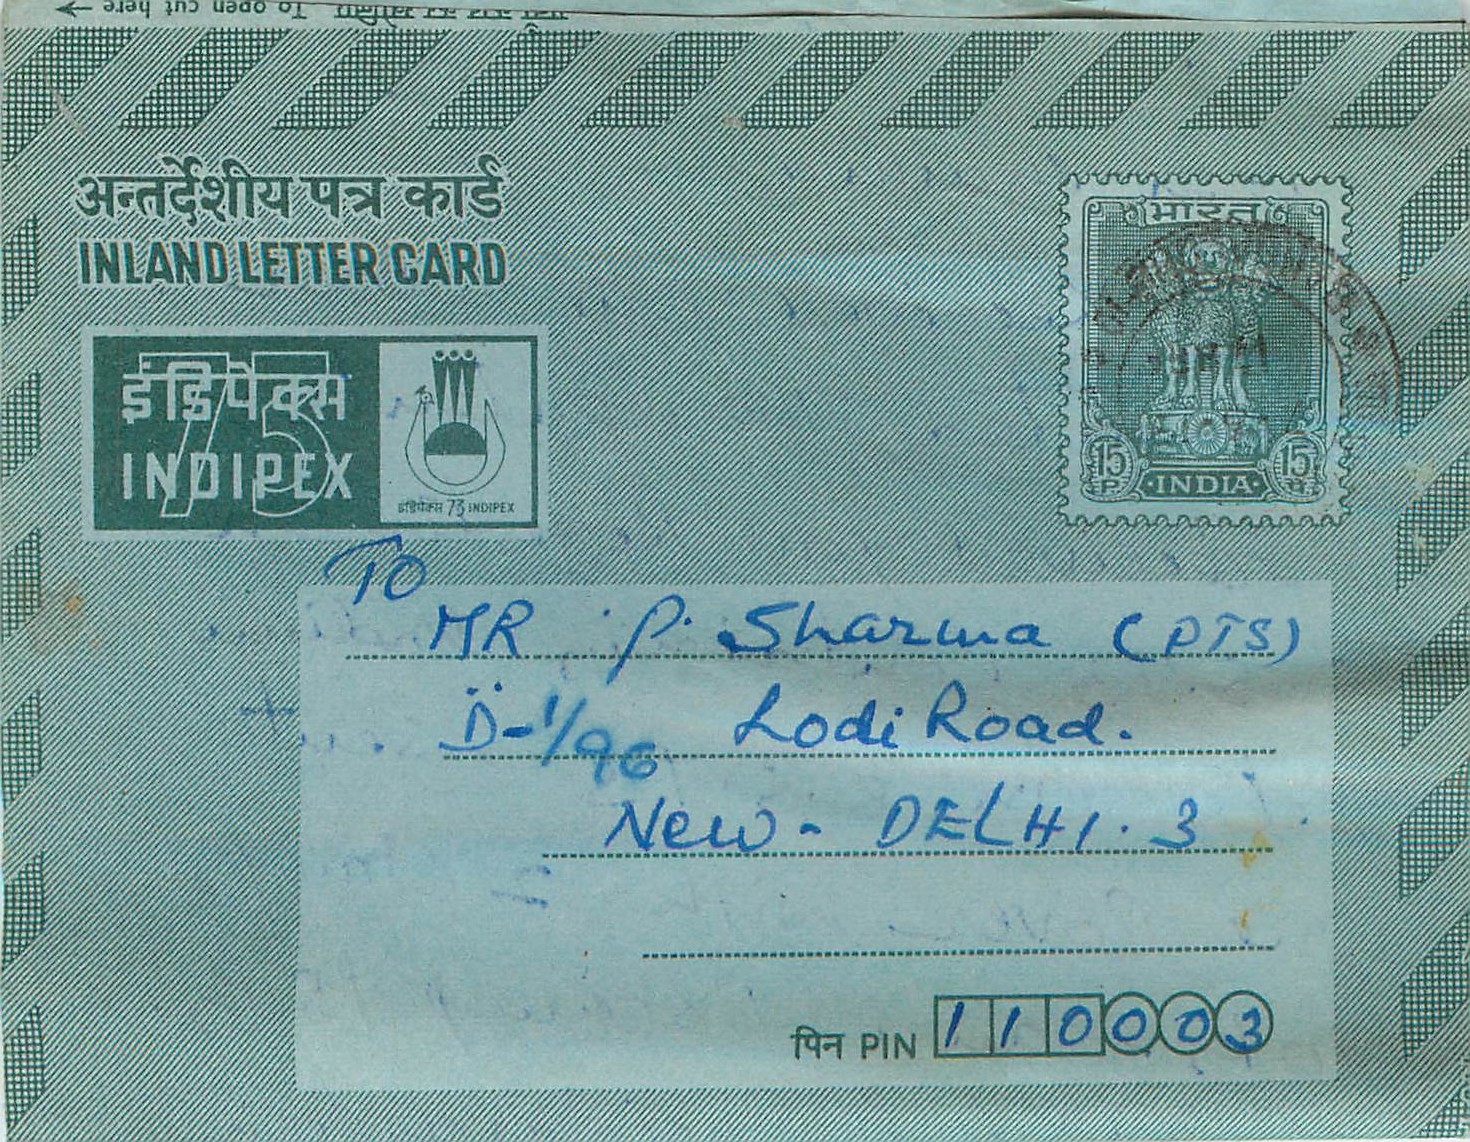 To open cut here
अन्तर्देशीय पत्र कार्ड
INLAND LETTER CARD
भारत
इंडिपेक्स
73
INDIPEX
इंडिपेक्स 73 INDIPEX
15 P. INDIA 15
TO
MR P. Sharma (PTS)
D-1/96 Lodi Road.
New - DELHI. 3
पिन PIN 110003